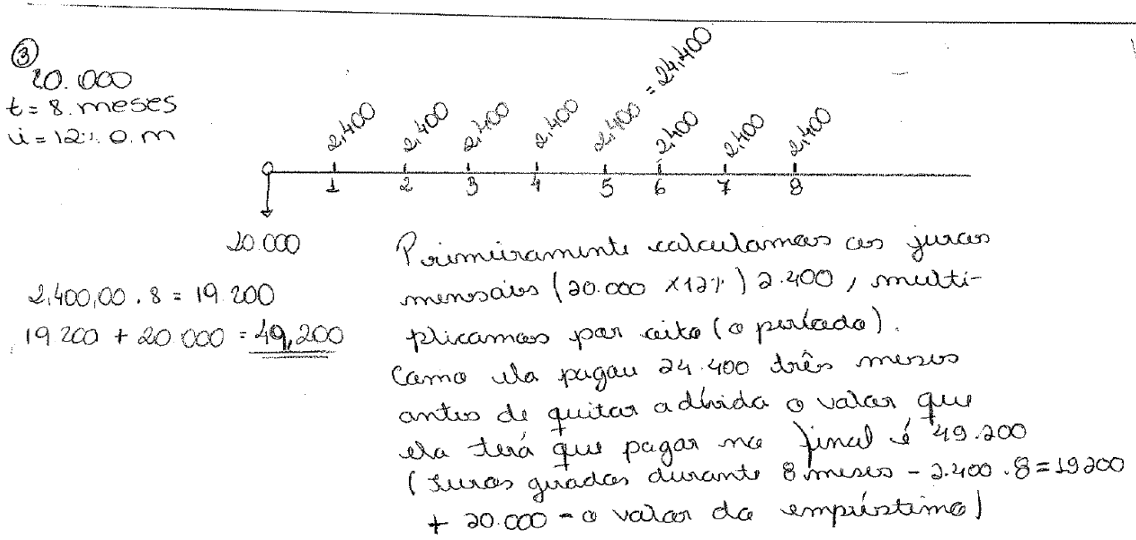 ③
20.000
t = 8. meses
i = 12%. a. m
2,400 2,400 2,400 2,400 2,400 = 24,400 2,400 2,400 2,400
0 1 2 3 4 5 6 7 8
20.000
2,400,00 . 8 = 19.200
19 200 + 20 000 = 49,200
Primeiramente calculamos os juros
mensais (20.000 x12%) 2.400, multi-
plicamos por oito (o período).
Como ela pagou 24.400 três meses
antes de quitar a dívida o valor que
ela terá que pagar no final é 49.200
(Juros gerados durante 8 meses - 2.400 . 8 = 19200
+ 20.000 - o valor do empréstimo)